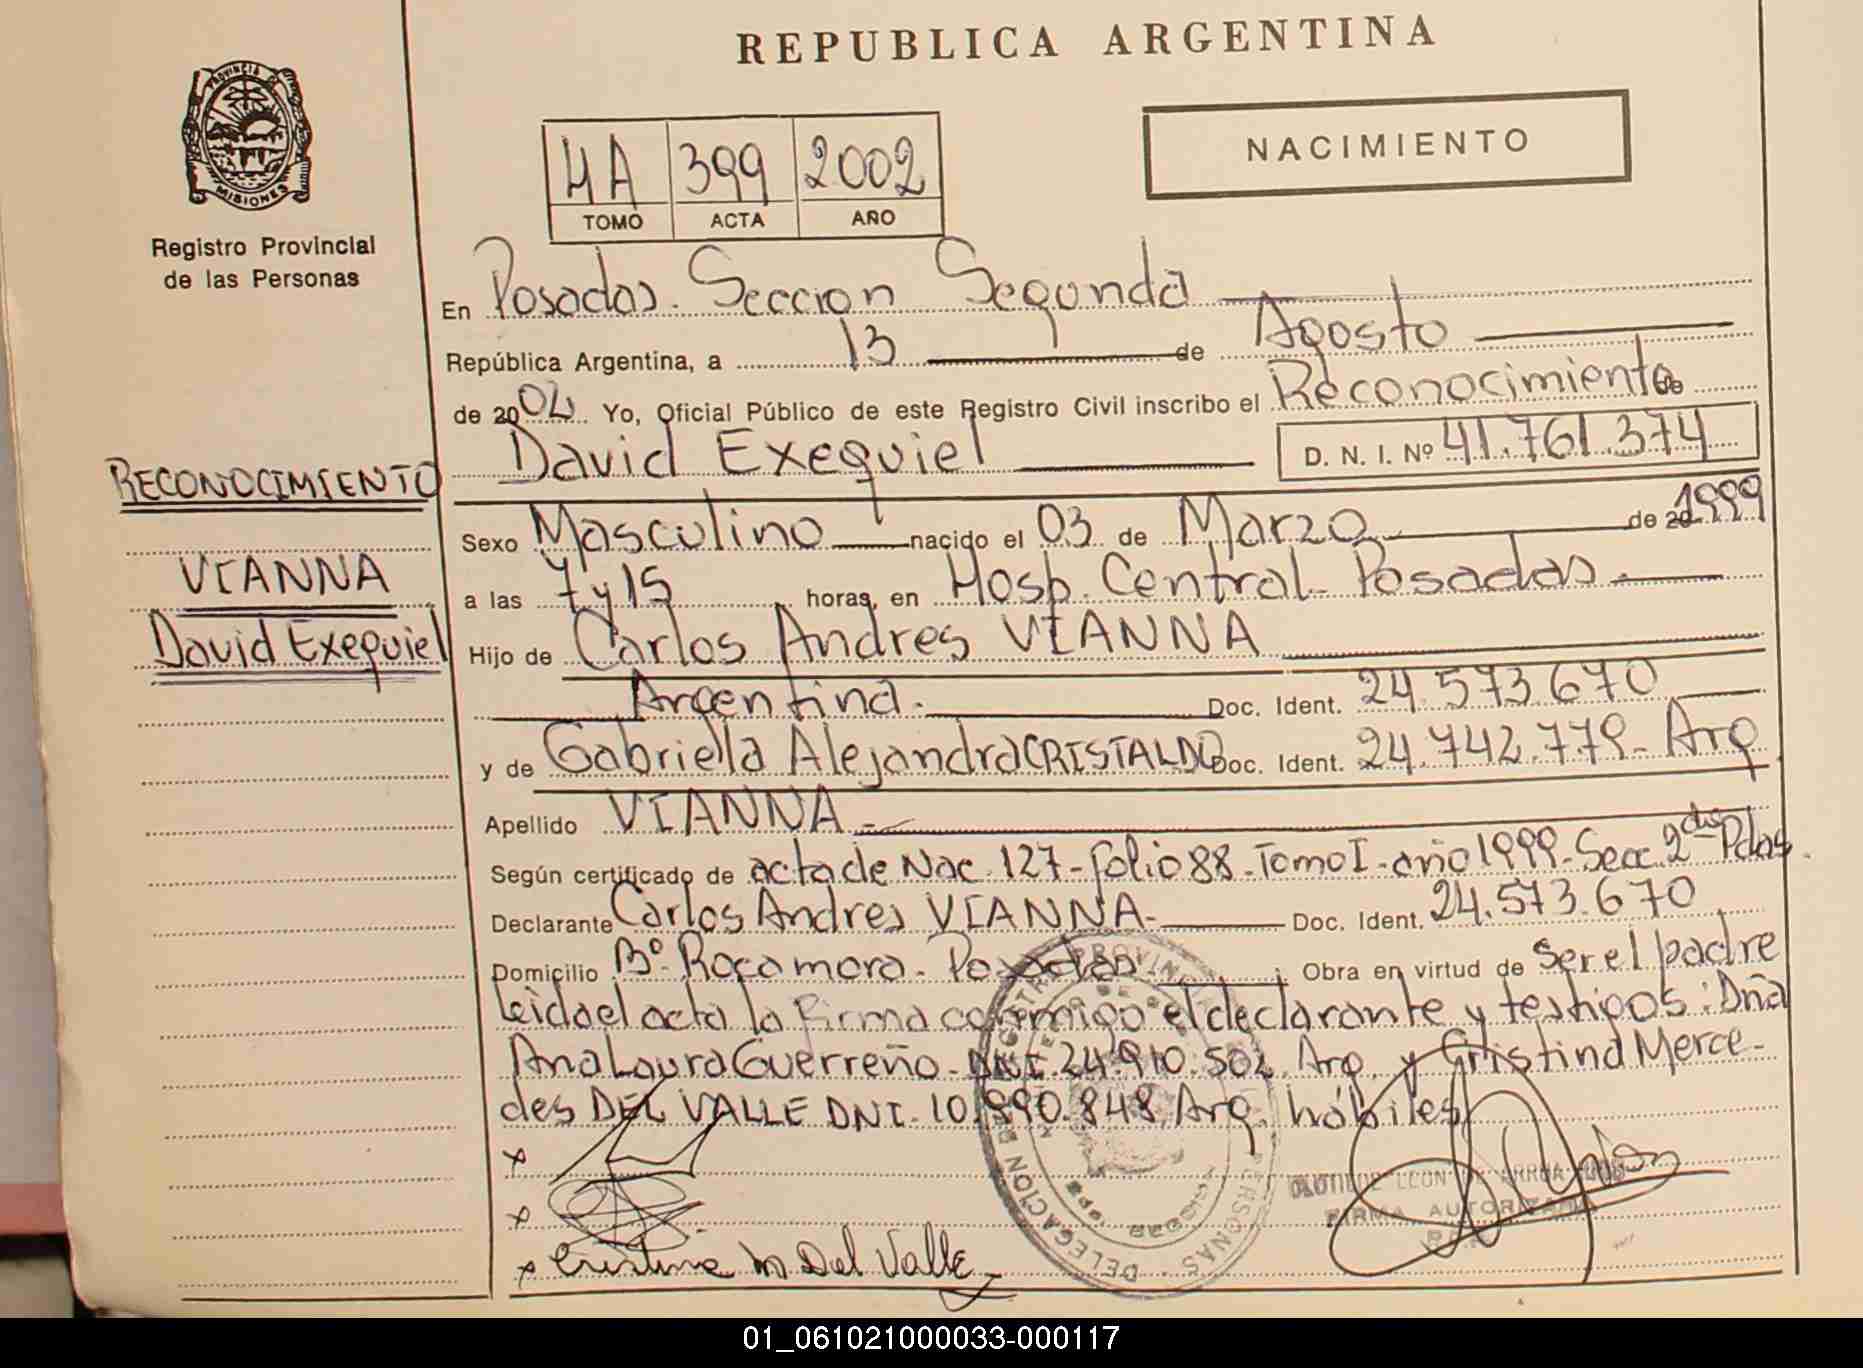 REPUBLICA ARGENTINA
PROVINCIA DE
MISIONES
Registro Provincial
de las Personas
NACIMIENTO
4A 399 2002
TOMO ACTA AÑO
En Posadas. Seccion Segunda
República Argentina, a 13 de Agosto
de 2002 Yo, Oficial Público de este Registro Civil inscribo el Reconocimiento de
David Exequiel D. N. I. Nº 41.761.374
RECONOCIMIENTO
VIANNA
David Exequiel
Sexo Masculino nacido el 03 de Marzo de 20 1999
a las 7 y 15 horas, en Hosp. Central Posadas.
Hijo de Carlos Andres VIANNA
Argentina. Doc. Ident. 24.573.670
y de Gabriella Alejandra CRISTALDO Doc. Ident. 24.742.779- Arg
Apellido VIANNA.-
Según certificado de acta de Nac. 127-folio 88-Tomo I-año 1999-Secc. 2da Pdas.
Declarante Carlos Andres VIANNA- Doc. Ident. 24.573.670
Domicilio Bº Rocamora- Posadas Obra en virtud de Ser el padre
leida el acta la firma conmigo el declarante y testigos: Dña
Ana Laura Guerreño-DNI.24.910.502. Arg. y Cristina Merce-
des DEL VALLE DNI. 10.890.848. Arg. hábiles
x
x
x Cristina M Del Valle
FIRMA AUTORIZADA
01_061021000033-000117